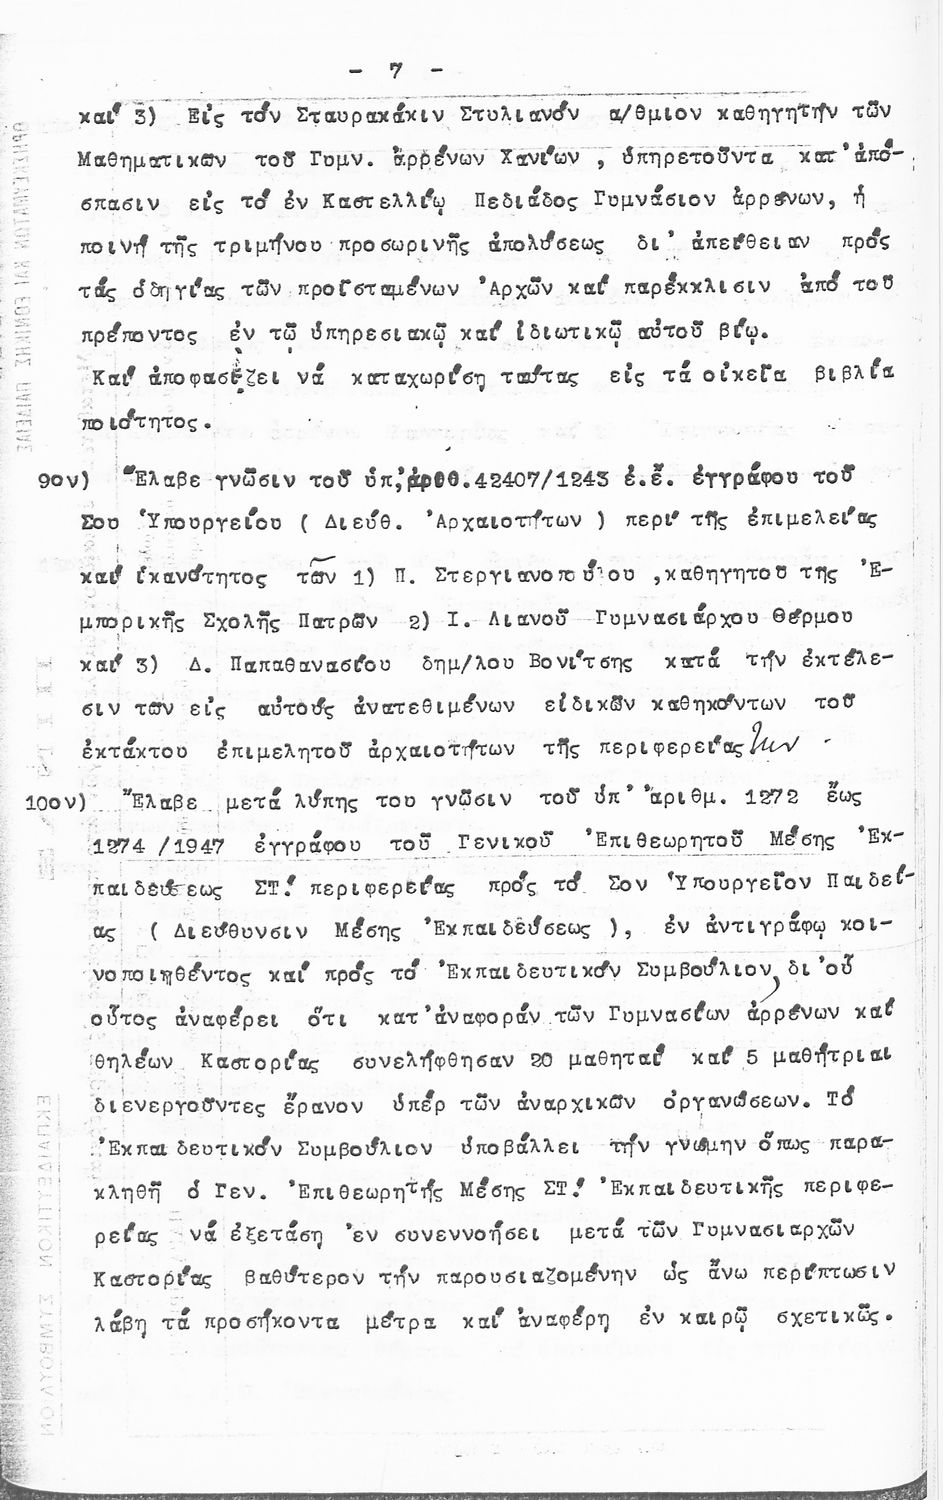 - 7 -
καί 3) Εἰς τόν Σταυρακάκιν Στυλιανόν α/θμιον καθηγητήν τῶν
Μαθηματικῶν τοῦ Γυμν. ἀρρένων Χανίων , ὑπηρετοῦντα κατ'ἀπό-
σπασιν εἰς τό ἐν Καστελλίῳ Πεδιάδος Γυμνάσιον ἀρρένων, ἡ
ποινή τῆς τριμήνου προσωρινῆς ἀπολύσεως δι' ἀπείθειαν πρός
τάς ὁδηγίας τῶν προϊσταμένων Ἀρχῶν καί παρέκκλισιν ἀπό τοῦ
πρέποντος ἐν τῷ ὑπηρεσιακῷ καί ἰδιωτικῷ αὐτοῦ βίῳ.
Καί ἀποφασίζει νά καταχωρίσῃ ταύτας εἰς τά οἰκεῖα βιβλία
ποιότητος.
9ον) Ἔλαβε γνῶσιν τοῦ ὑπ'ἀριθ.42407/1243 ἐ.ἔ. ἐγγράφου τοῦ
Σου Ὑπουργείου ( Διεύθ. Ἀρχαιοτήτων ) περί τῆς ἐπιμελείας
καί ἱκανότητος τῶν 1) Π. Στεργιανοπούλου ,καθηγητοῦ της Ἐ-
μπορικῆς Σχολῆς Πατρῶν 2) Ι. Λιανοῦ Γυμνασιάρχου Θέρμου
καί 3) Δ. Παπαθανασίου δημ/λου Βονίτσης κατά τήν ἐκτέλε-
σιν τῶν εἰς αὐτούς ἀνατεθιμένων εἰδικῶν καθηκόντων τοῦ
ἐκτάκτου ἐπιμελητοῦ ἀρχαιοτήτων τῆς περιφερείας των .
10ον) Ἔλαβε μετά λύπης του γνῶσιν τοῦ ὑπ' ἀριθμ. 1272 ἕως
1274 /1947 ἐγγράφου τοῦ Γενικοῦ Ἐπιθεωρητοῦ Μέσης Ἐκ-
παιδεύσεως ΣΤ! περιφερείας πρός τό Σον Ὑπουργεῖον Παιδεί-
ας ( Διεύθυνσιν Μέσης Ἐκπαιδεύσεως ), ἐν ἀντιγράφῳ κοι-
νοποιηθέντος καί πρός τό Ἐκπαιδευτικόν Συμβούλιον, δι'οὗ
οὗτος ἀναφέρει ὅτι κατ'ἀναφοράν τῶν Γυμνασίων ἀρρένων καί
θηλέων Καστορίας συνελήφθησαν 20 μαθηταί καί 5 μαθήτριαι
διενεργοῦντες ἔρανον ὑπέρ τῶν ἀναρχικῶν ὀργανώσεων. Τό
Ἐκπαιδευτικόν Συμβούλιον ὑποβάλλει τήν γνώμην ὅπως παρα-
κληθῇ ὁ Γεν. Ἐπιθεωρητής Μέσης ΣΤ! Ἐκπαιδευτικῆς περιφε-
ρείας νά ἐξετάσῃ ἐν συνεννοήσει μετά τῶν Γυμνασιαρχῶν
Καστορίας βαθύτερον τήν παρουσιαζομένην ὡς ἄνω περίπτωσιν
λάβῃ τά προσήκοντα μέτρα καί ἀναφέρῃ ἐν καιρῷ σχετικῶς.